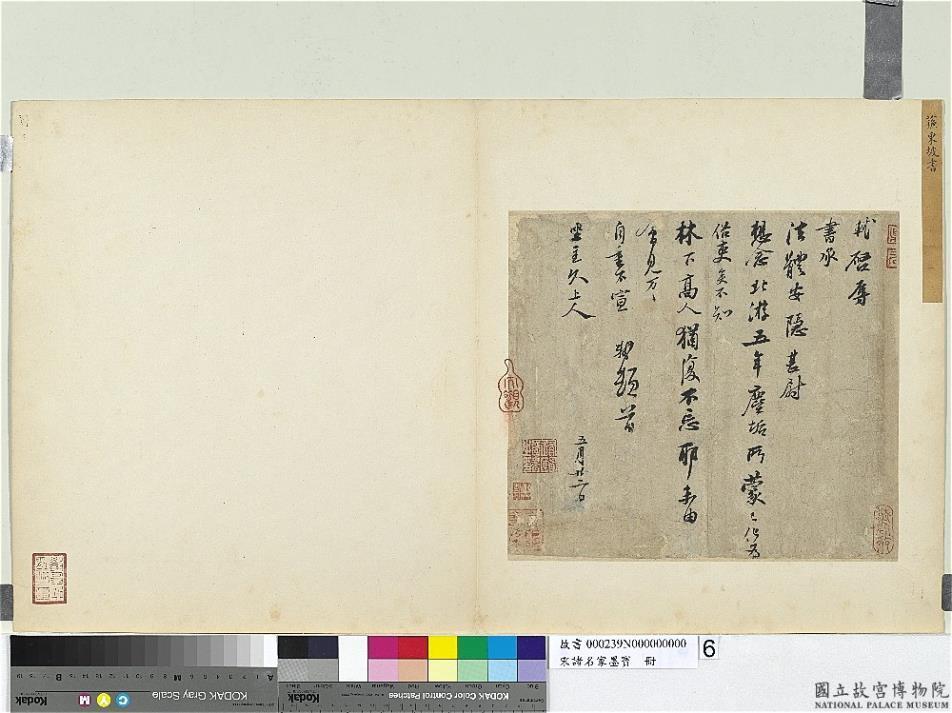 蘇東坡書
軾啓辱
書承
法體安隱甚慰
想念北游五年塵垢所蒙已化為
俗吏矣不知
林下高人猶復不忘耶未由
會見万万
自重不宣 軾頓首
坐主久上人
五月廿二日
KODAK Gray Scale
Kodak
C Y M
A
B
Kodak
KODAK Color Control Patches
故書 000239N000000000
宋諸名家墨寶 冊
6
國立故宮博物院
NATIONAL PALACE MUSEUM